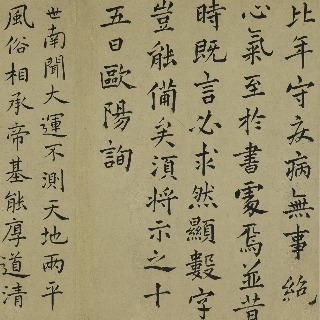 比年守疾病無事絶
心氣至於書處焉並昔
時既言必求然顯數字
豈能備矣須將示之十
五日歐陽詢
世南聞大運不測天地兩平
風俗相承帝基能厚道清